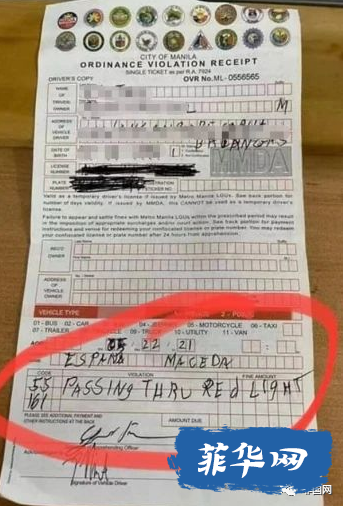 CITY OF MANILA
ORDINANCE VIOLATION RECEIPT
SINGLE TICKET as per R.A. 7924
DRIVER'S COPY
OVR No. ML- 0556565
NAME OF
M
ADDRESS OF VEHICLE DRIVER
DATE OF BIRTH
MMDA
LICENSE NUMBER
PLATE NUMBER
REGISTRATION STICKER NO
Valid as a temporary driver's license if issued by Metro Manila LGUs. See back portion for
number of days validity. If issued by MMDA, this CANNOT be used as a temporary driver's
license.
Failure to appear and settle fines with Metro Manila LGUs within the prescribed period may result
in the imposition of appropriate surcharges and/or court action. See back portion for payment
instructions and venue for redeeming your confiscated license or plate number. You may redeem
your confiscated license or plate number after 24 hours from apprehension.
OWNER
ADDRESS OF VEHICLE OWNER
VEHICLE TYPE
01 - BUS 02 - CAR 04 - JEEPNEY 05 - MOTORCYCLE 06 - TAXI
07 - TRAILER 09 - TRUCK 10 - UTILITY 11 - VAN
22 21
ESPANA MACEDA
CODE VIOLATION FINE AMOUNT
PASSING THRU RED LIGHT
PLEASE SEE ADDITIONAL PAYMENT AND OTHER INSTRUCTIONS AT THE BACK
AMOUNT DUE
Apprehending Officer
Signature of Vehicle Driver
菲华网